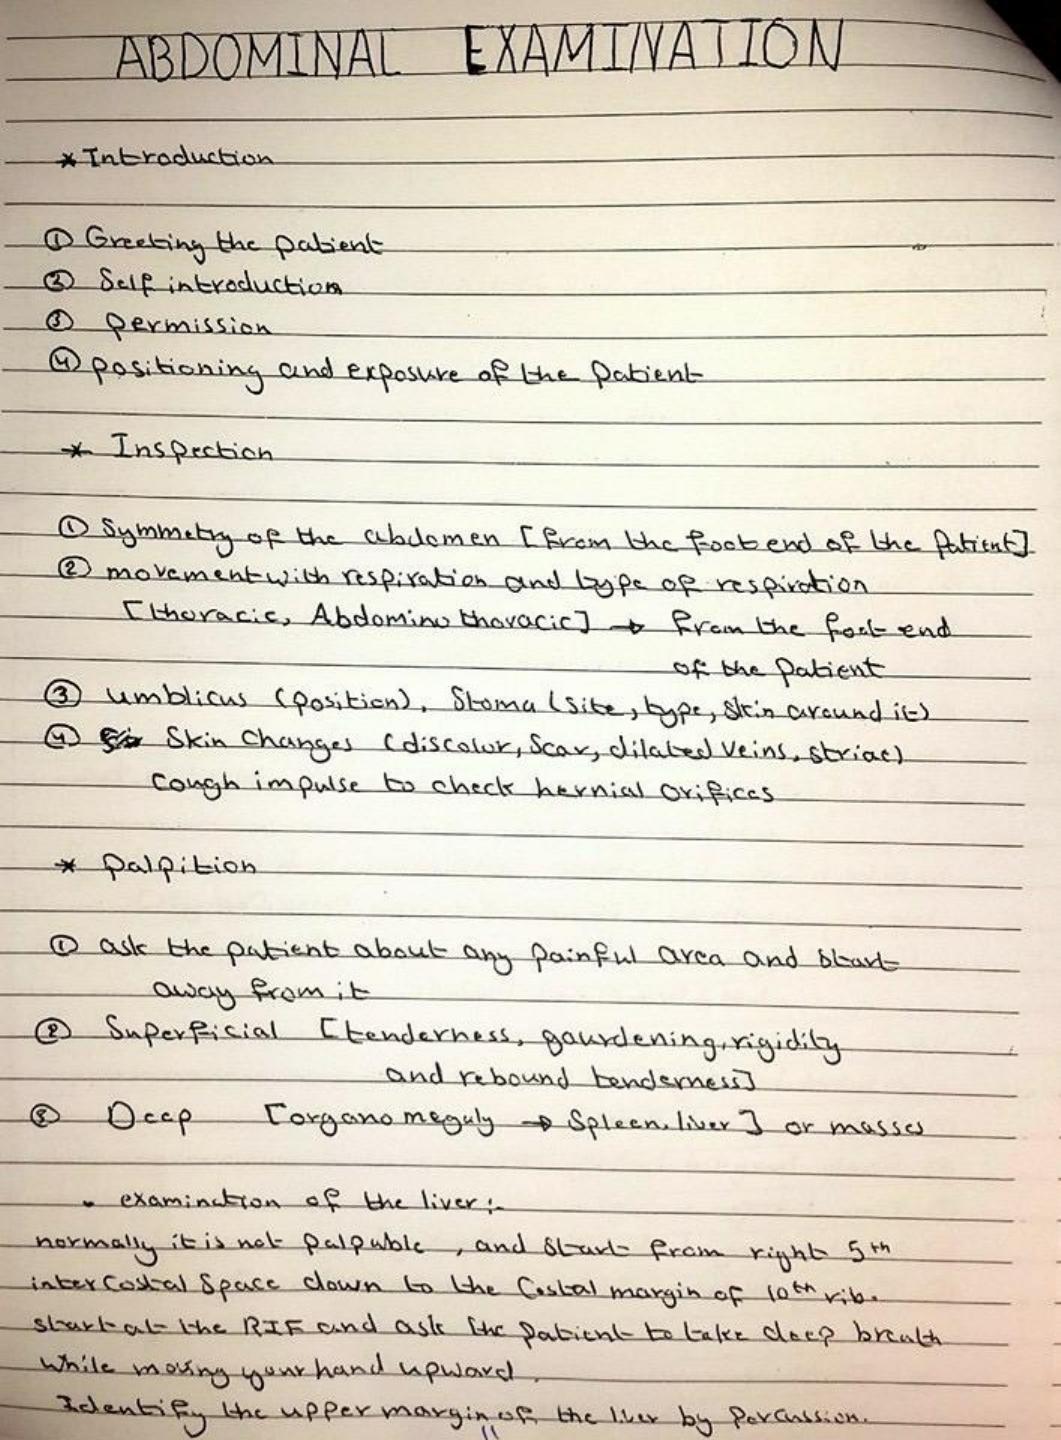 ABDOMINAL EXAMINATION
* Introduction
① Greeting the patient
② Self introduction
③ permission
④ positioning and exposure of the patient
* Inspection
① Symmetry of the abdomen [from the foot end of the patient]
② movement with respiration and type of respiration
[thoracic, Abdomino thoracic] → from the foot end
of the patient
③ umblicus (position), Stoma (site, type, skin around it)
④ Skin changes (discolur, Scar, dilated veins, striae)
cough impulse to check hernial orifices
* palpition
① ask the patient about any painful area and start
away from it
② Superficial [tenderness, gaurdening, rigidity
and rebound tenderness]
③ Deep [organomegaly → Spleen, liver] or masses
• examination of the liver:-
normally it is not palpable, and start from right 5th
intercostal space down to the Costal margin of 10th rib.
start at the RIF and ask the patient to take deep breath
while moving your hand upward.
Identify the upper margin of the liver by percussion.